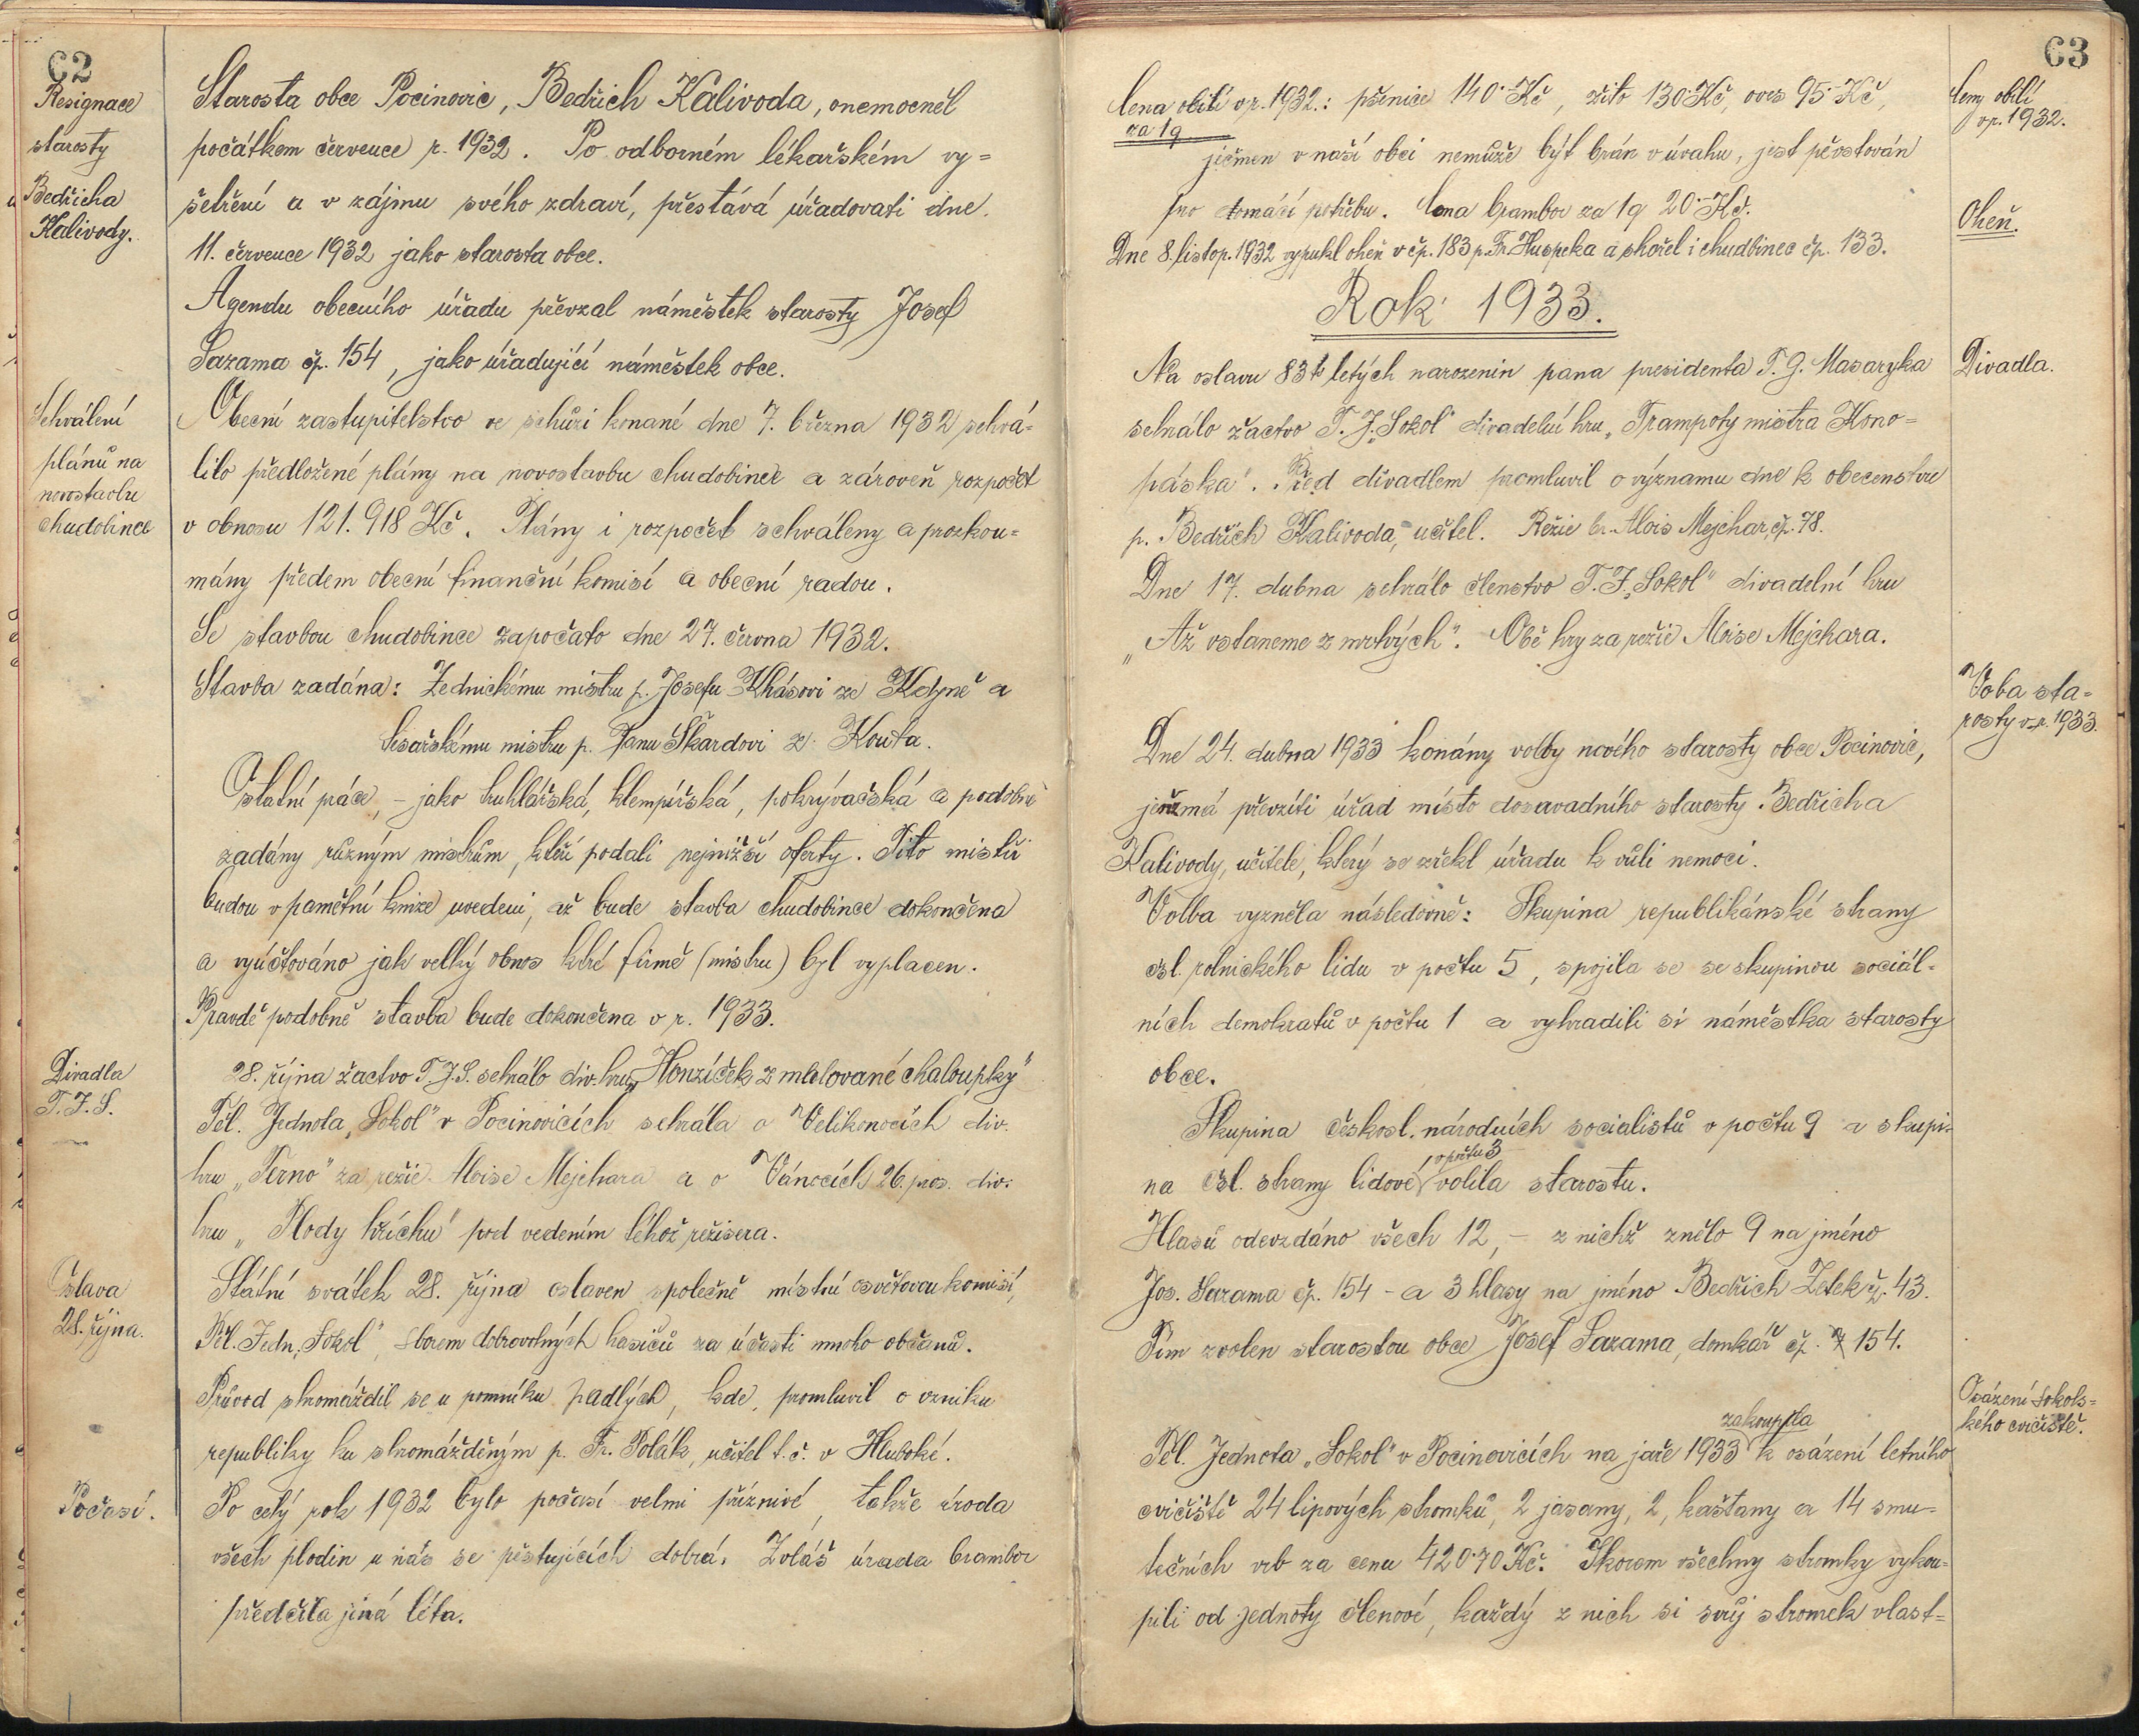 62
Resignace
starosty
Bedřicha
Kalivody.
Starosta obce Pocinovic, Bedřich Kalivoda, onemocněl
počátkem července r. 1932. Po odborném lékařském vy=
šetření a v zájmu svého zdraví, přestává úřadovati dne
11. července 1932 jako starosta obce.
Agendu obecního úřadu převzal náměstek starosty Josef
Sazama čp. 154, jako úřadující náměstek obce.
Schválení
plánů na
novostavbu
chudobince
Obecní zastupitelstvo ve schůzi konané dne 7. března 1932 schvá-
lilo předložené plány na novostavbu chudobince a zároveň rozpočet
v obnosu 121.918 Kč. Plány i rozpočet schváleny a prozkou=
mány předem obecní finanční komisí a obecní radou.
Se stavbou chudobince započato dne 27. června 1932.
Stavba zadána: Zednickému mistru p. Josefu Khásovi ze Kdyně a
tesařskému mistru p. Janu Škardovi z Kouta.
Ostatní práce, - jako truhlářská, klempířská, pokrývačská a podobně
zadány různým mistrům, kteří podali nejnižší oferty. Tito mistři
budou v pamětní knize uvedeni, až bude stavba chudobince dokončena
a vyúčtováno jak velký obnos které firmě (mistru) byl vyplacen.
Pravdě podobně stavba bude dokončena v r. 1933.
Divadla
T.J.S.
28. října žactvo T.J.S. sehrálo div. hru „Honzíček z malované chaloupky"
Těl. Jednota „Sokol" v Pocinovicích sehrála o Velikonocích div.
hru „Terno" za režie Aloise Mejchara a o Vánocích 26. pros. div.
hru „Plody hříchu" pod vedením téhož režisera.
Oslava
28. října.
Státní svátek 28. října oslaven společně místní osvětovou komisí,
Těl. Jedn. „Sokol", sborem dobrovolných hasičů za účasti mnoho občanů.
Průvod shromáždil se u pomníku padlých, kde promluvil o vzniku
republiky ku shromážděným p. Fr. Polák, učitel t. č. v Hluboké.
Počasí.
Po celý rok 1932 bylo počasí velmi příznivé, takže úroda
všech plodin u nás se pěstujících dobrá. Zvláš úroda brambor
předčila jiná léta.
63
Cena obilí v r. 1932.: pšenice 140·Kč, žito 130·Kč, oves 95·Kč,
za 1q
ječmen v naší obci nemůže být brán v úvahu, jest pěstován
pro domácí potřebu. Cena brambor za 1q 20·-Kč.
Ceny obilí
v r. 1932.
Dne 8. listop. 1932 vypukl oheň v čp. 183 p. Fr. Huspeka a shořel i chudbinec čp. 133.
Oheň.
Rok 1933.
Na oslavu 83ti letých narozenin pana presidenta T. G. Masaryka
sehrálo žactvo T. J. „Sokol" divadelní hru „Trampoty mistra Kono=
páska". Před divadlem promluvil o významu dne k obecenstvu
p. Bedřich Kalivoda, učitel. Režie br. Alois Mejchar, čp. 78.
Dne 17. dubna sehrálo členstvo T. J. „Sokol" divadelní hru
„Až vstaneme z mrtvých". Obě hry za režie Aloise Mejchara.
Divadla.
Voba sta=
rosty v r. 1933.
Dne 24. dubna 1933 konány volby nového starosty obce Pocinovic,
jenž má převzíti úřad místo dosavadního starosty Bedřicha
Kalivody, učitele, který se zřekl úřadu k vůli nemoci.
Volba vyzněla následovně: Skupina republikánské strany
čsl. rolnického lidu v počtu 5, spojila se se skupinou sociál-
ních demokratů v počtu 1 a vyhradili si náměstka starosty
obce.
Skupina českosl. národních socialistů v počtu 9 a skupi-
na čsl. strany lidové, v počtu 3 volila starostu.
Hlasů odevzdáno všech 12, - z nichž znělo 9 na jméno
Jos. Sazama čp. 154 - a 3 hlasy na jméno Bedřich Zetek č. 43.
Tím zvolen starostou obce Josef Sazama, domkář čp. 154.
Osázení sokols=
kého cvičiště.
Těl. Jednota „Sokol" v Pocinovicích na jaře 1933 zakoupila k osázení letního
cvičiště 24 lipových stromků, 2 jasany, 2, kaštany a 14 smu=
tečních vrb za cenu 420·70 Kč. Skorem všechny stromky vykou=
pili od jednoty členové, každý z nich si svůj stromek vlast=